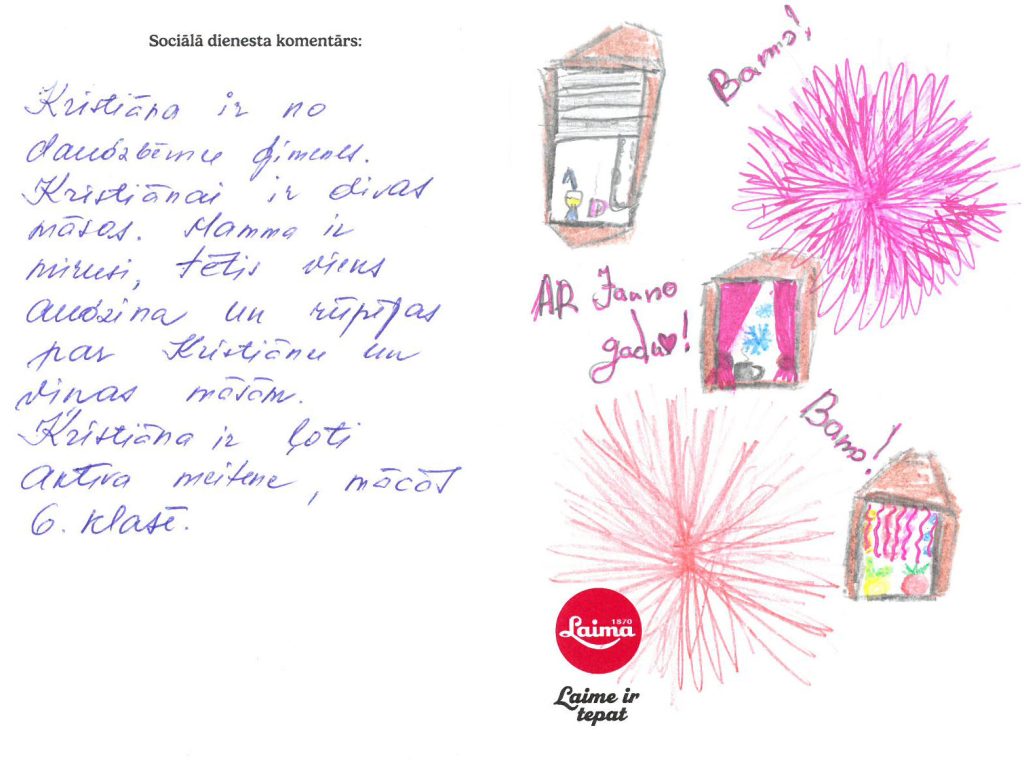 Sociālā dienesta komentārs:
Kristiāna ir no
daudzbērnu ģimenes.
Kristiānai ir divas
māsas. Mamma ir
mirusi, tētis viens
audzina un rūpējas
par Kristiānu un
viņas māsām.
Kristiāna ir ļoti
aktīva meitene, mācās
6. klasē.
Bamo!
AR Jauno
gadu!
Bamo!
1870
Laima
Laime ir
tepat